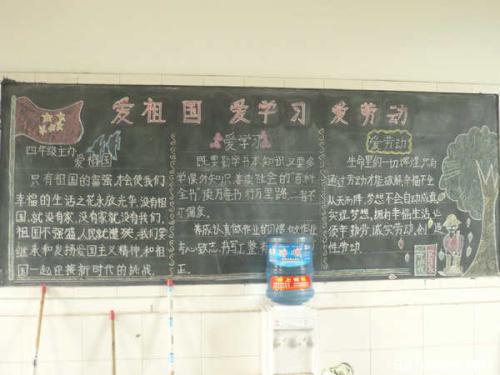 爱祖国 爱学习 爱劳动
四年级主办
爱祖国
只有祖国的富强,才会使我们
幸福的生活之花永放光华,没有祖
国,就没有家,没有家,就没有我们。
祖国不强盛,人民就遭殃,我们要
继承和发扬爱国主义精神,和祖
国一起迎接新时代的挑战。
爱学习
既要勤学书本知识,又要多
学课外知识,喜读社会的“百科
全书”使万卷书,行万里路,一书不
可偏废。
养成认真做作业的习惯,做作业
专心致志,书写工整
正。
爱劳动
生命里的一切辉煌,只有
通过劳动才能破解,幸福不会
从天而降,梦想不会自动成真,
实现梦想,拥有幸福生活,必
须辛勤劳动,诚实劳动,创造
性劳动。